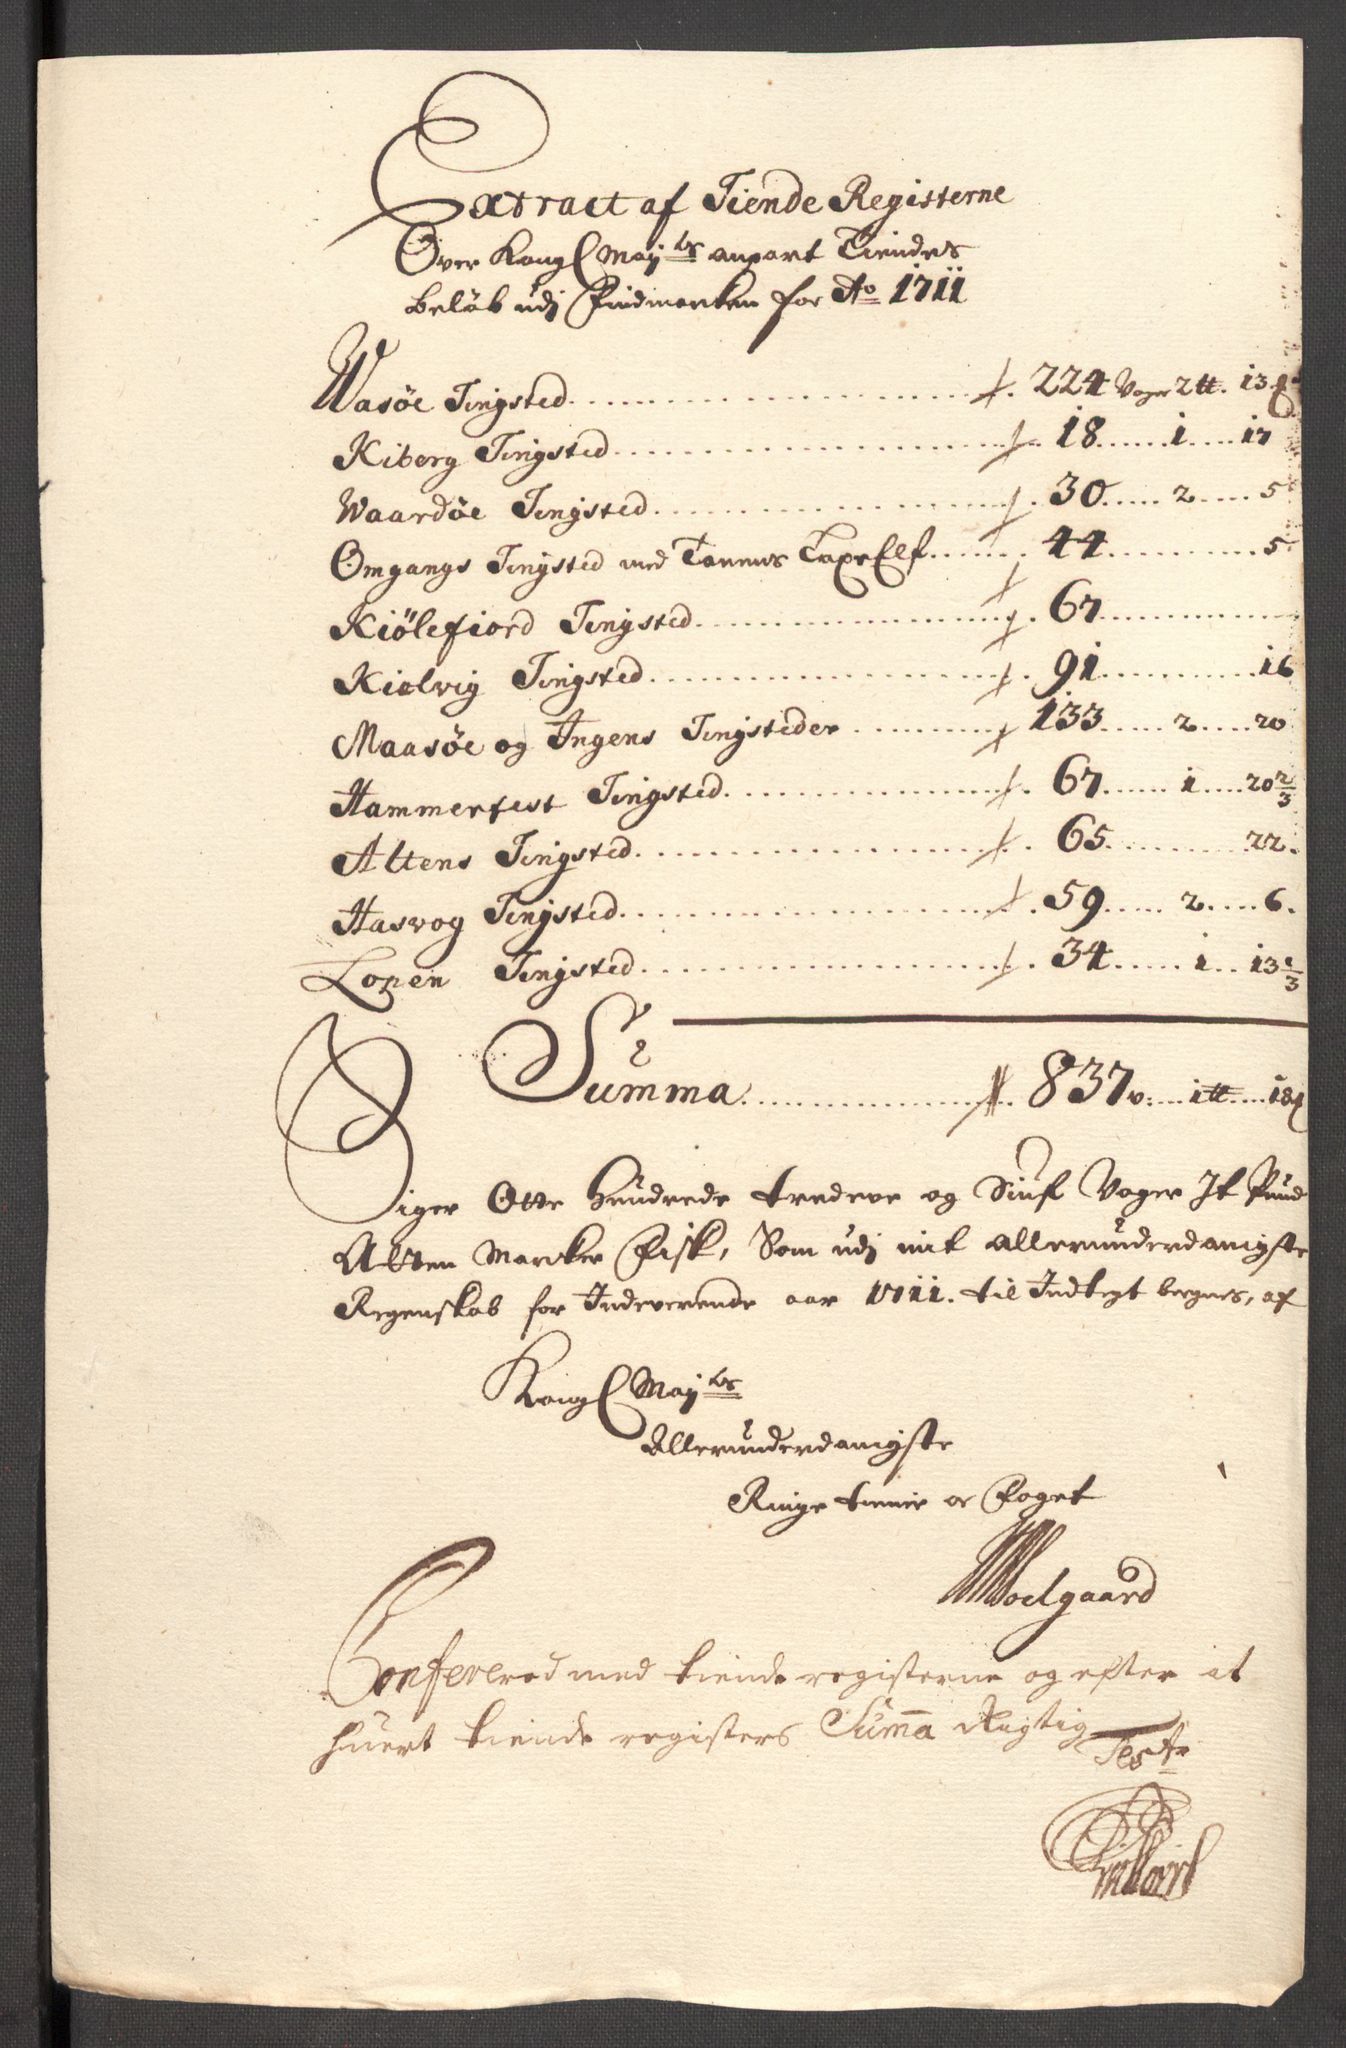 Extract af Tiende Registerne
Over Kongl May:ts anpart Tiendes
Beløb udj Findmarken for Ao 1711
Wasöe Tingsted 224 Voger 2 tt. 13
Kiberg Tingsted 18 1 17
Waardöe Tingsted 30 2 5
Omgangs Tingsted med Tannes Elf 44 5
Kiölefiord Tingsted 67
Kielvig Tingsted 91 16
Maasöe og Ingens Tingsteder 133 2 20
Hammerfest Tingsted 67 1 20 2/3
Altens Tingsted 65 22
Hasvog Tingsted 59 2 6
Loppen Tingsted 34 1 13 1/3
Summa 837 v: 1 tt 18
Siger Otte Hundrede tredeve og Siuf Voger It Pund
Atten Marcker Fisk, Som udj mit allerunderdanigste
Regenskab for Indeverende aar 1711. til Indtegt beregnes, af
Kongl May:ts
Allerunderdanigste
Ringe tienner oc Foget
Soelgaard
Confererod med tiende registerne og efter at
huert tiende registers Summa Rigtig
Teste